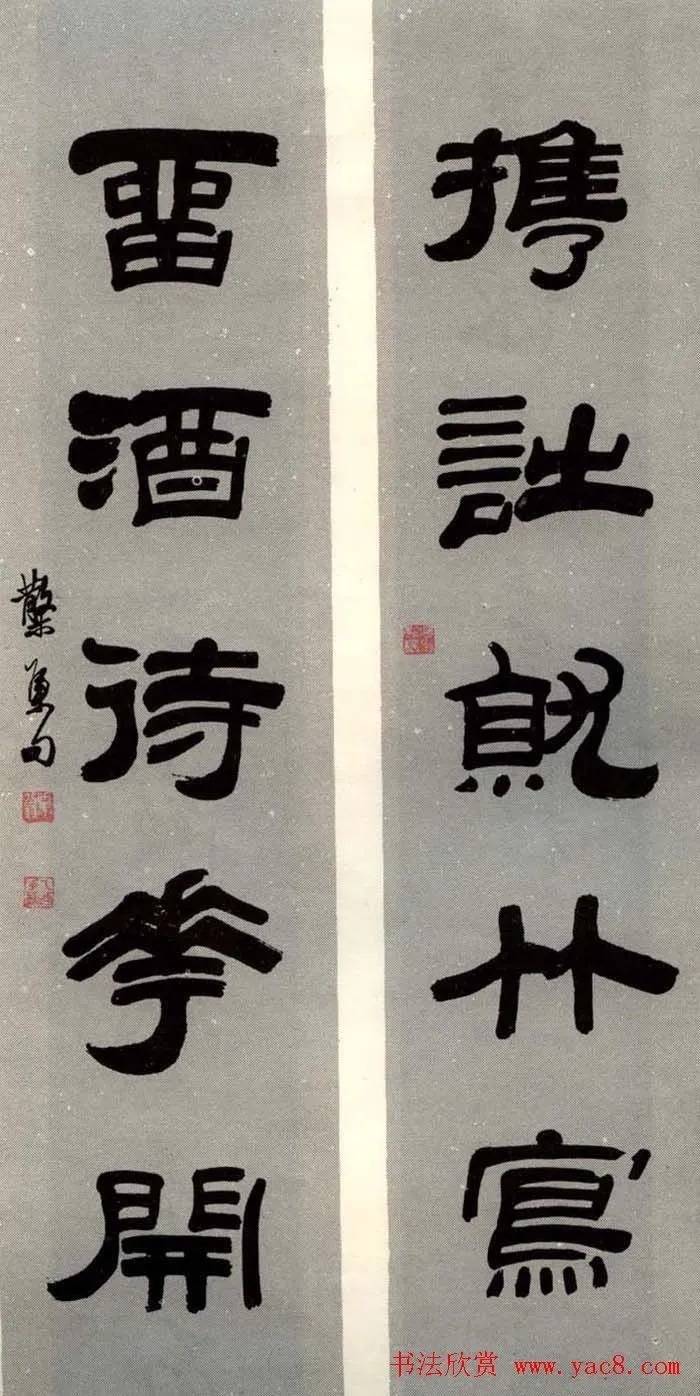 携詩就竹寫
留酒待華開
书法欣赏 www.yac8.com